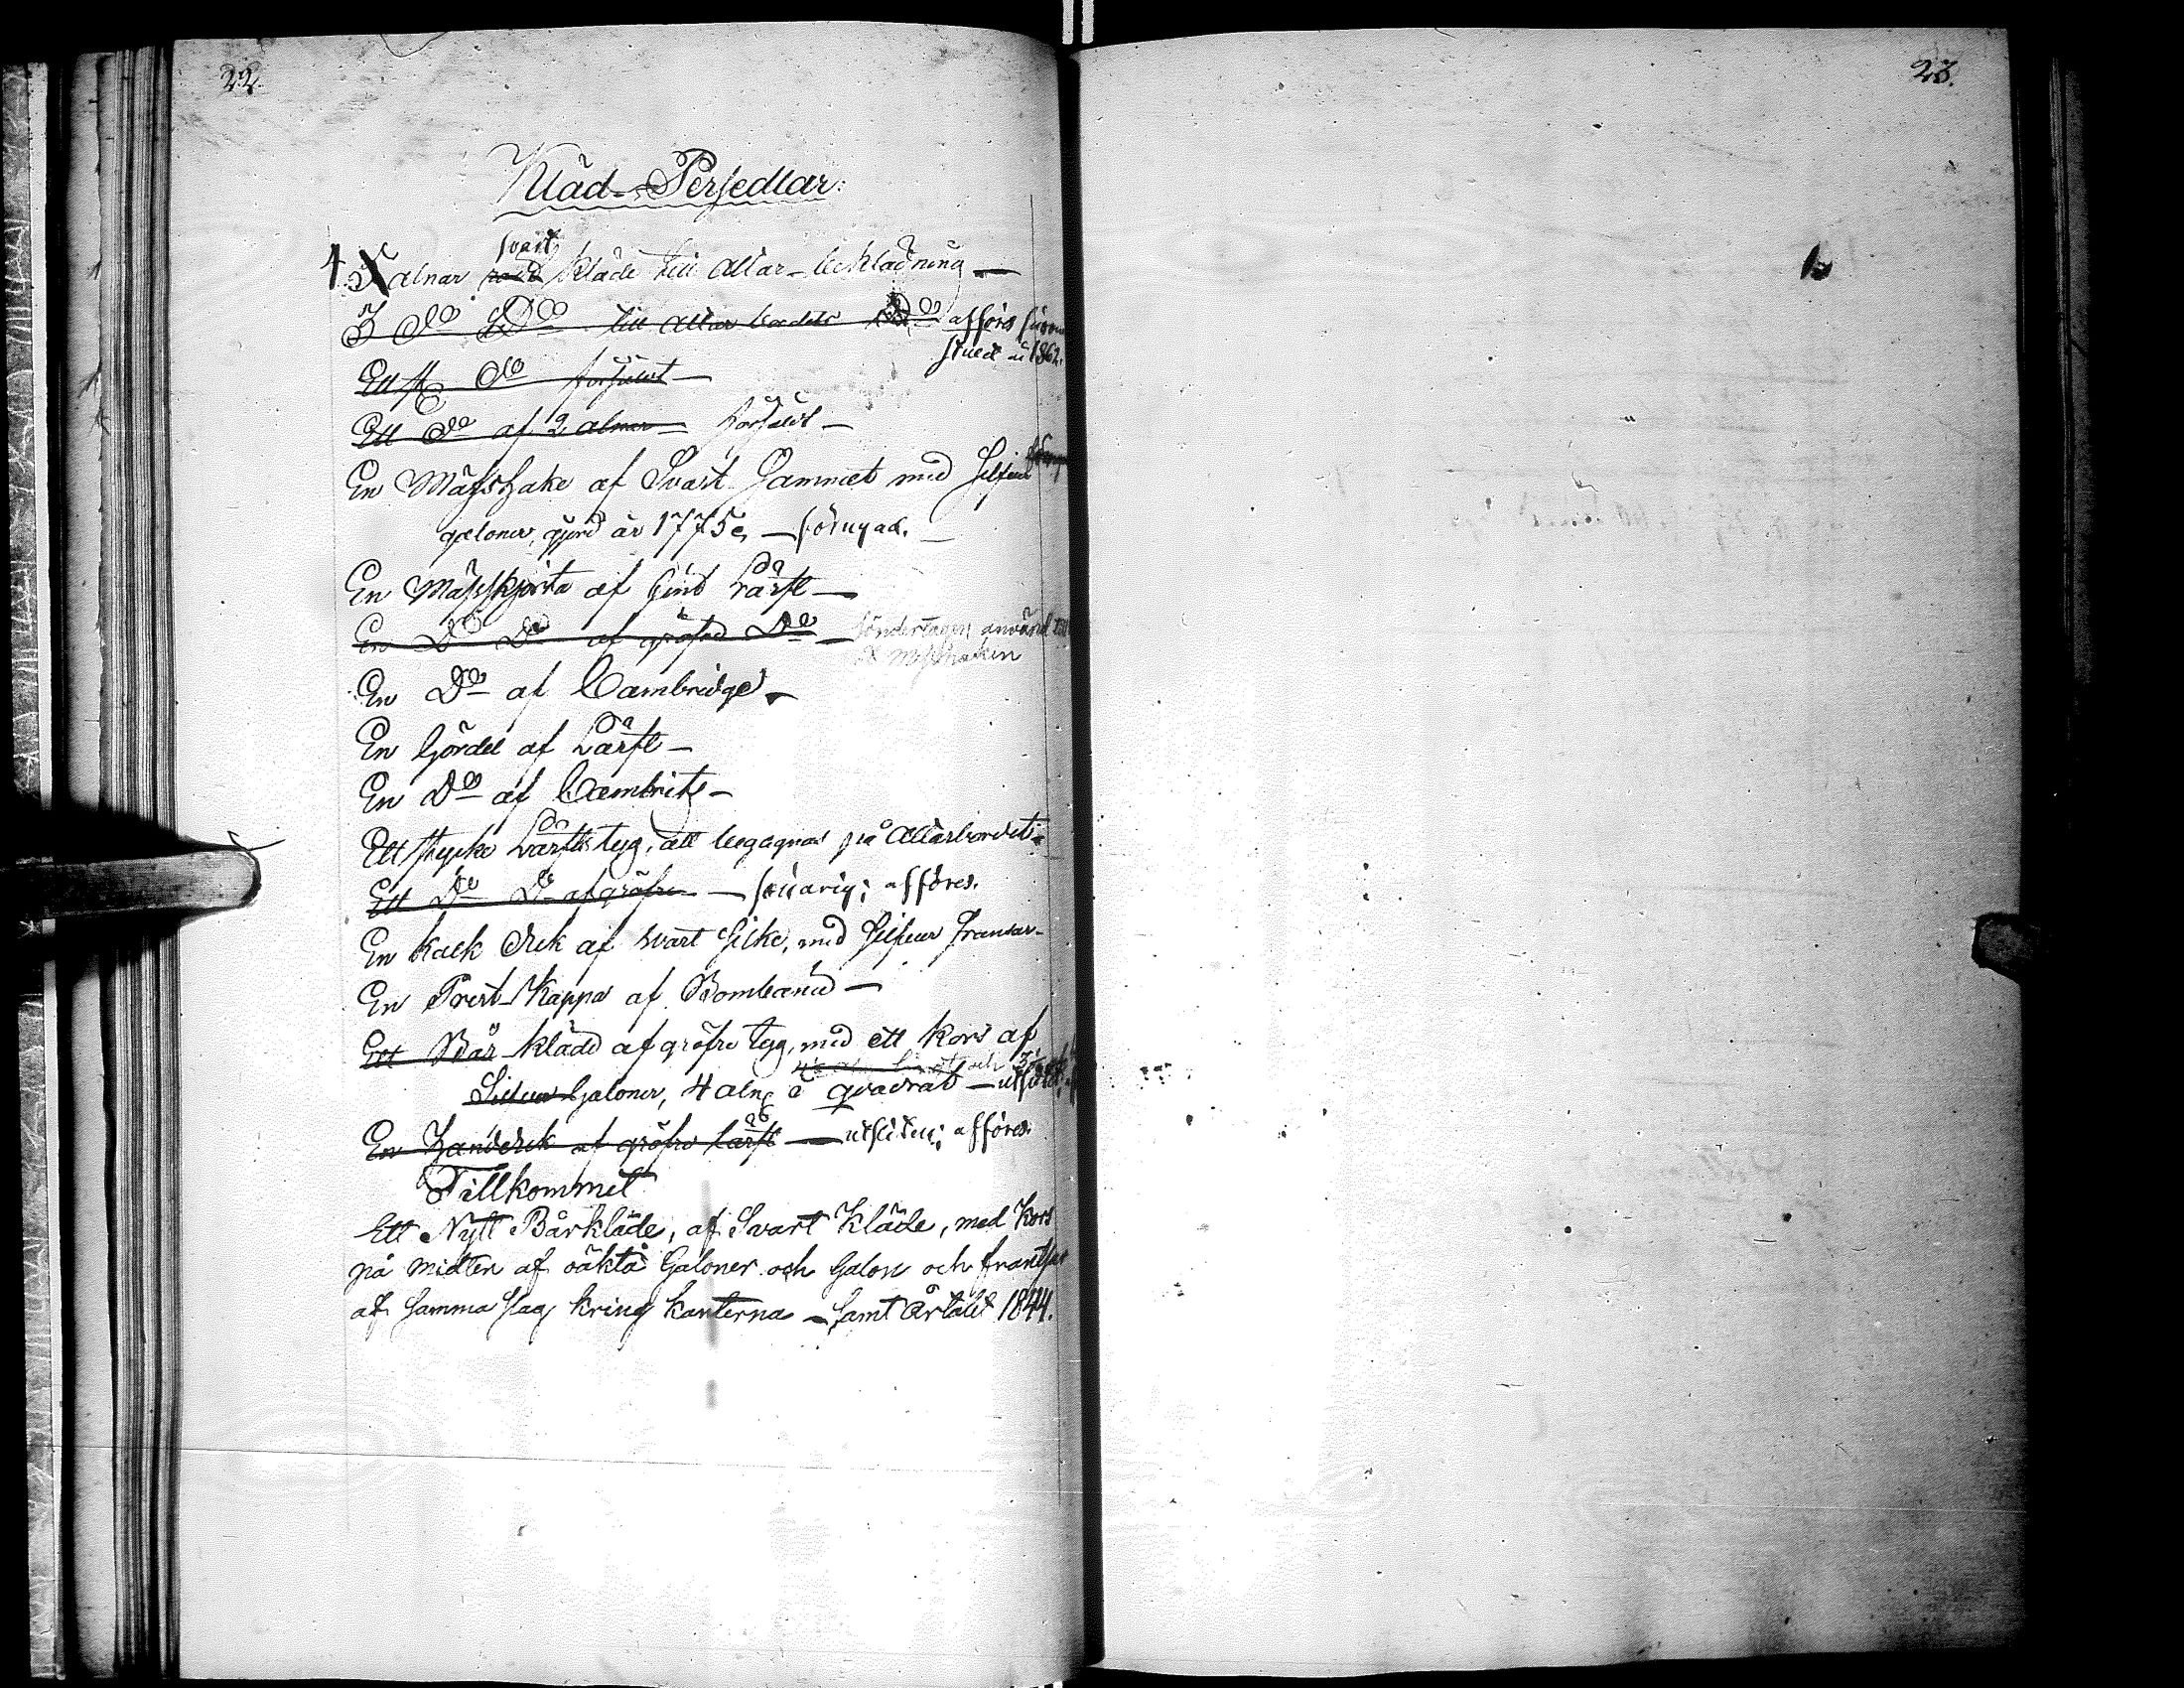 22.
23.
Kläd-Persedlar.
svart
4 alnar rödt Kläde till Altar-beklädning —
3 do Do till Altar bordets Do afföres såsom
stulet år 1862.
Ett st do försåldt —
Ett do af 2 alnar — försåldt —
En Mässhake af Svart Sammet med Silfver
galoner, gjord år 1775 — förnyad. —
En Mässkjorta af fint Lärft —
En Do Do af gröfre Do — Söndertagen använd till
messhaken
En Do af Cambridge —
En Gördel af Lärft —
En Do af Cambrits —
Ett stycke Lärfts tyg, att begagnas på Altarbordet —
Ett Do Do af gröfre — afföres.
En Kalk duk af svart Silke, med Silfver Fransar —
En Prest-Kappa af Bombasin —
Ett Bår-kläde af gröfre tyg, med ett kors af
Silfver Galoner, 4 aln i qvadrat — utslitet
En Handduk af gröfre lärft — utsliten; afföres.
Tillkommit
Ett Nytt Bårkläde, af Svart Kläde, med Kors
på midten af oäkta Galoner och Galon och fransar
af samma slag kring kanterna — samt Årtalet 1844.